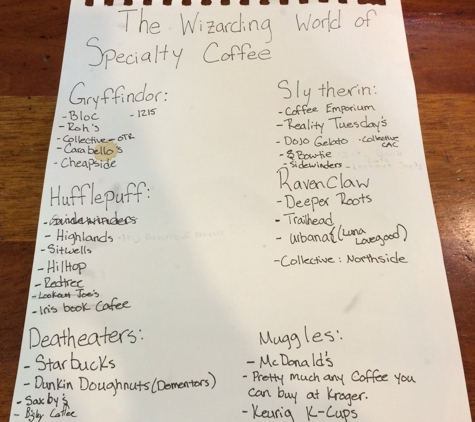 The Wizarding World of
Specialty Coffee
Gryffindor:
- Bloc - 1215
- Roh's
- Collective - OTR
- Carabello's
- Cheapside
Slytherin:
- Coffee Emporium
- Reality Tuesday's
- Dojo Gelato · Collective CAC
- Bowtie
- Sidewinders
Hufflepuff:
- Sidewinders
- Highlands
- Sitwells
- Hilltop
- Redtree
- Lookout Joe's
- Iris book Cafee
Ravenclaw
- Deeper Roots
- Trailhead
- urbana (Luna Lovegood)
- Collective: Northside
Deatheaters:
- Starbucks
- Dunkin Doughnuts (Dementors)
- Saxby's
- Coffee
Muggles:
- McDonald's
- Pretty much any Coffee you
can buy at Kroger.
- Keurig K-Cups